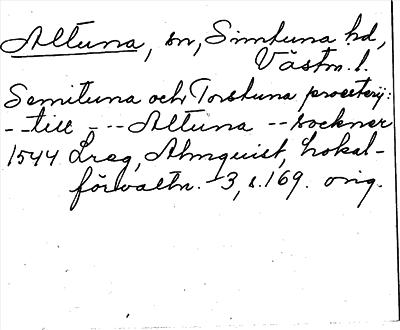 Altuna, sn, Simtuna hd,
Västm. l.
Semituna och Torstuna prosterij:
- - till - - - Altuna - - sockner
1544 Lreg, Almquist, Lokal-
förvaltn. 3, s. 169. orig.